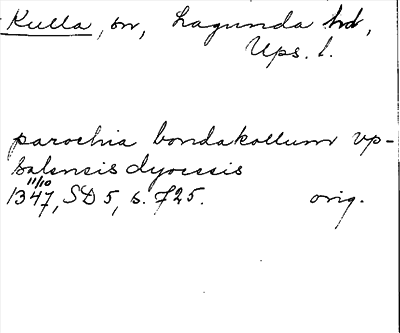 Kulla, sn, Lagunda hd,
Ups. l.
parochia bondakollum vp-
salensis dyocesis
11/10
1347, SD 5, s. 725.
orig.